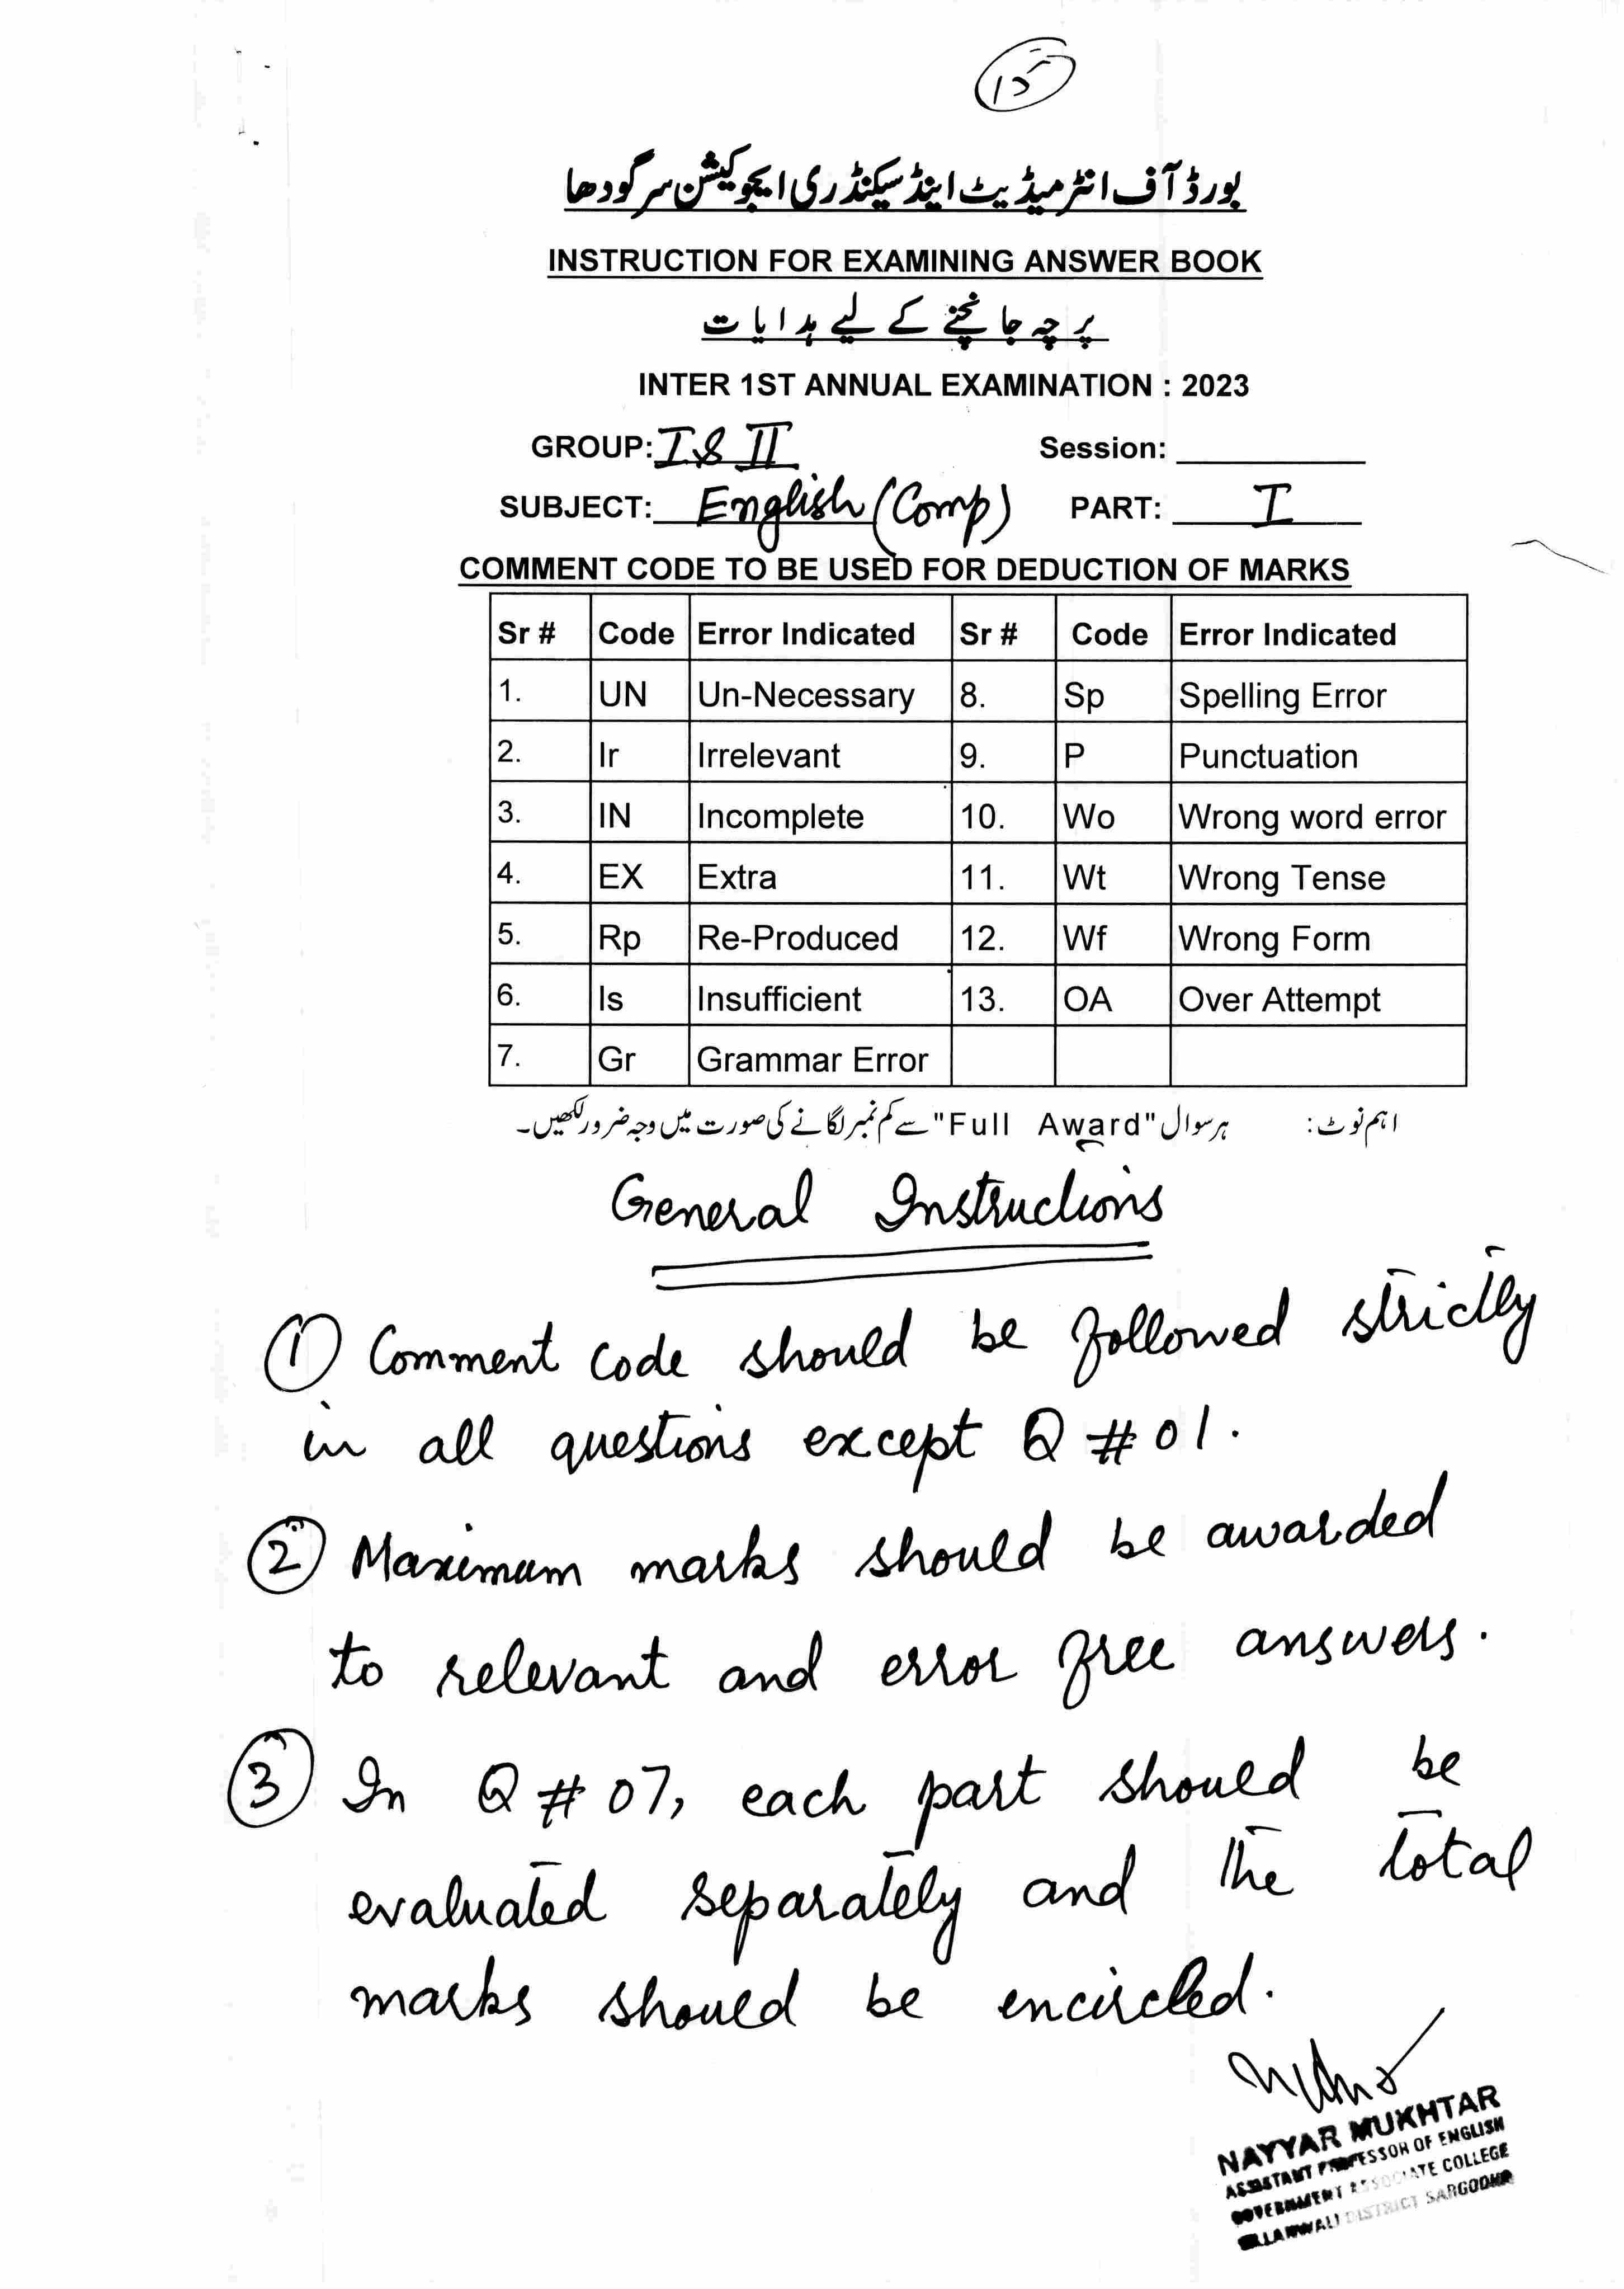 15
بورڈ آف انٹرمیڈیٹ اینڈ سیکنڈری ایجوکیشن سرگودھا
INSTRUCTION FOR EXAMINING ANSWER BOOK
پرچہ جانچنے کے لیے ہدایات
INTER 1ST ANNUAL EXAMINATION : 2023
GROUP: I & II Session:
SUBJECT: English (Comp) PART: I
COMMENT CODE TO BE USED FOR DEDUCTION OF MARKS
Sr # Code Error Indicated Sr # Code Error Indicated
1. UN Un-Necessary 8. Sp Spelling Error
2. Ir Irrelevant 9. P Punctuation
3. IN Incomplete 10. Wo Wrong word error
4. EX Extra 11. Wt Wrong Tense
5. Rp Re-Produced 12. Wf Wrong Form
6. Is Insufficient 13. OA Over Attempt
7. Gr Grammar Error
اہم نوٹ: ہر سوال "Full Award" سے کم نمبر لگانے کی صورت میں وجہ ضرور لکھیں۔
General Instructions
1 Comment code should be followed strictly
in all questions except Q # 01.
2 Maximum marks should be awarded
to relevant and error free answers.
3 In Q # 07, each part should be
evaluated separately and the total
marks should be encircled.
NAYYAR MUKHTAR
ASSISTANT PROFESSOR OF ENGLISH
GOVERNMENT ASSOCIATE COLLEGE
SILLANWALI DISTRICT SARGODHA